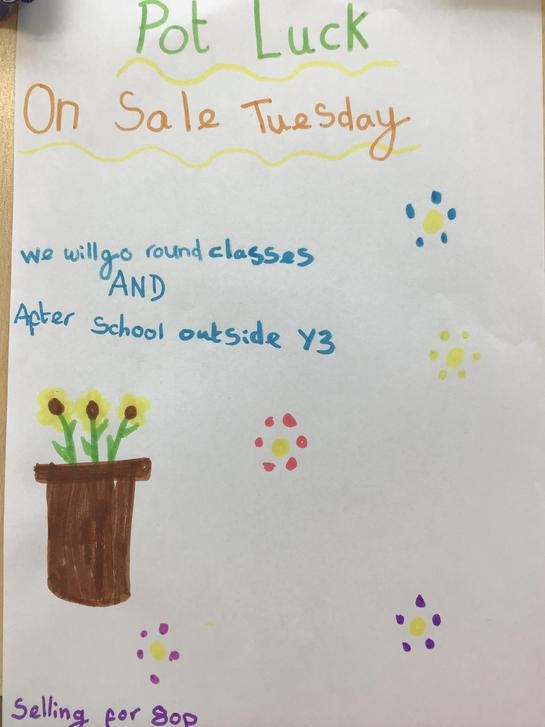 Pot Luck
On Sale Tuesday
we will go round classes
AND
After School outside Y3
Selling for 80p